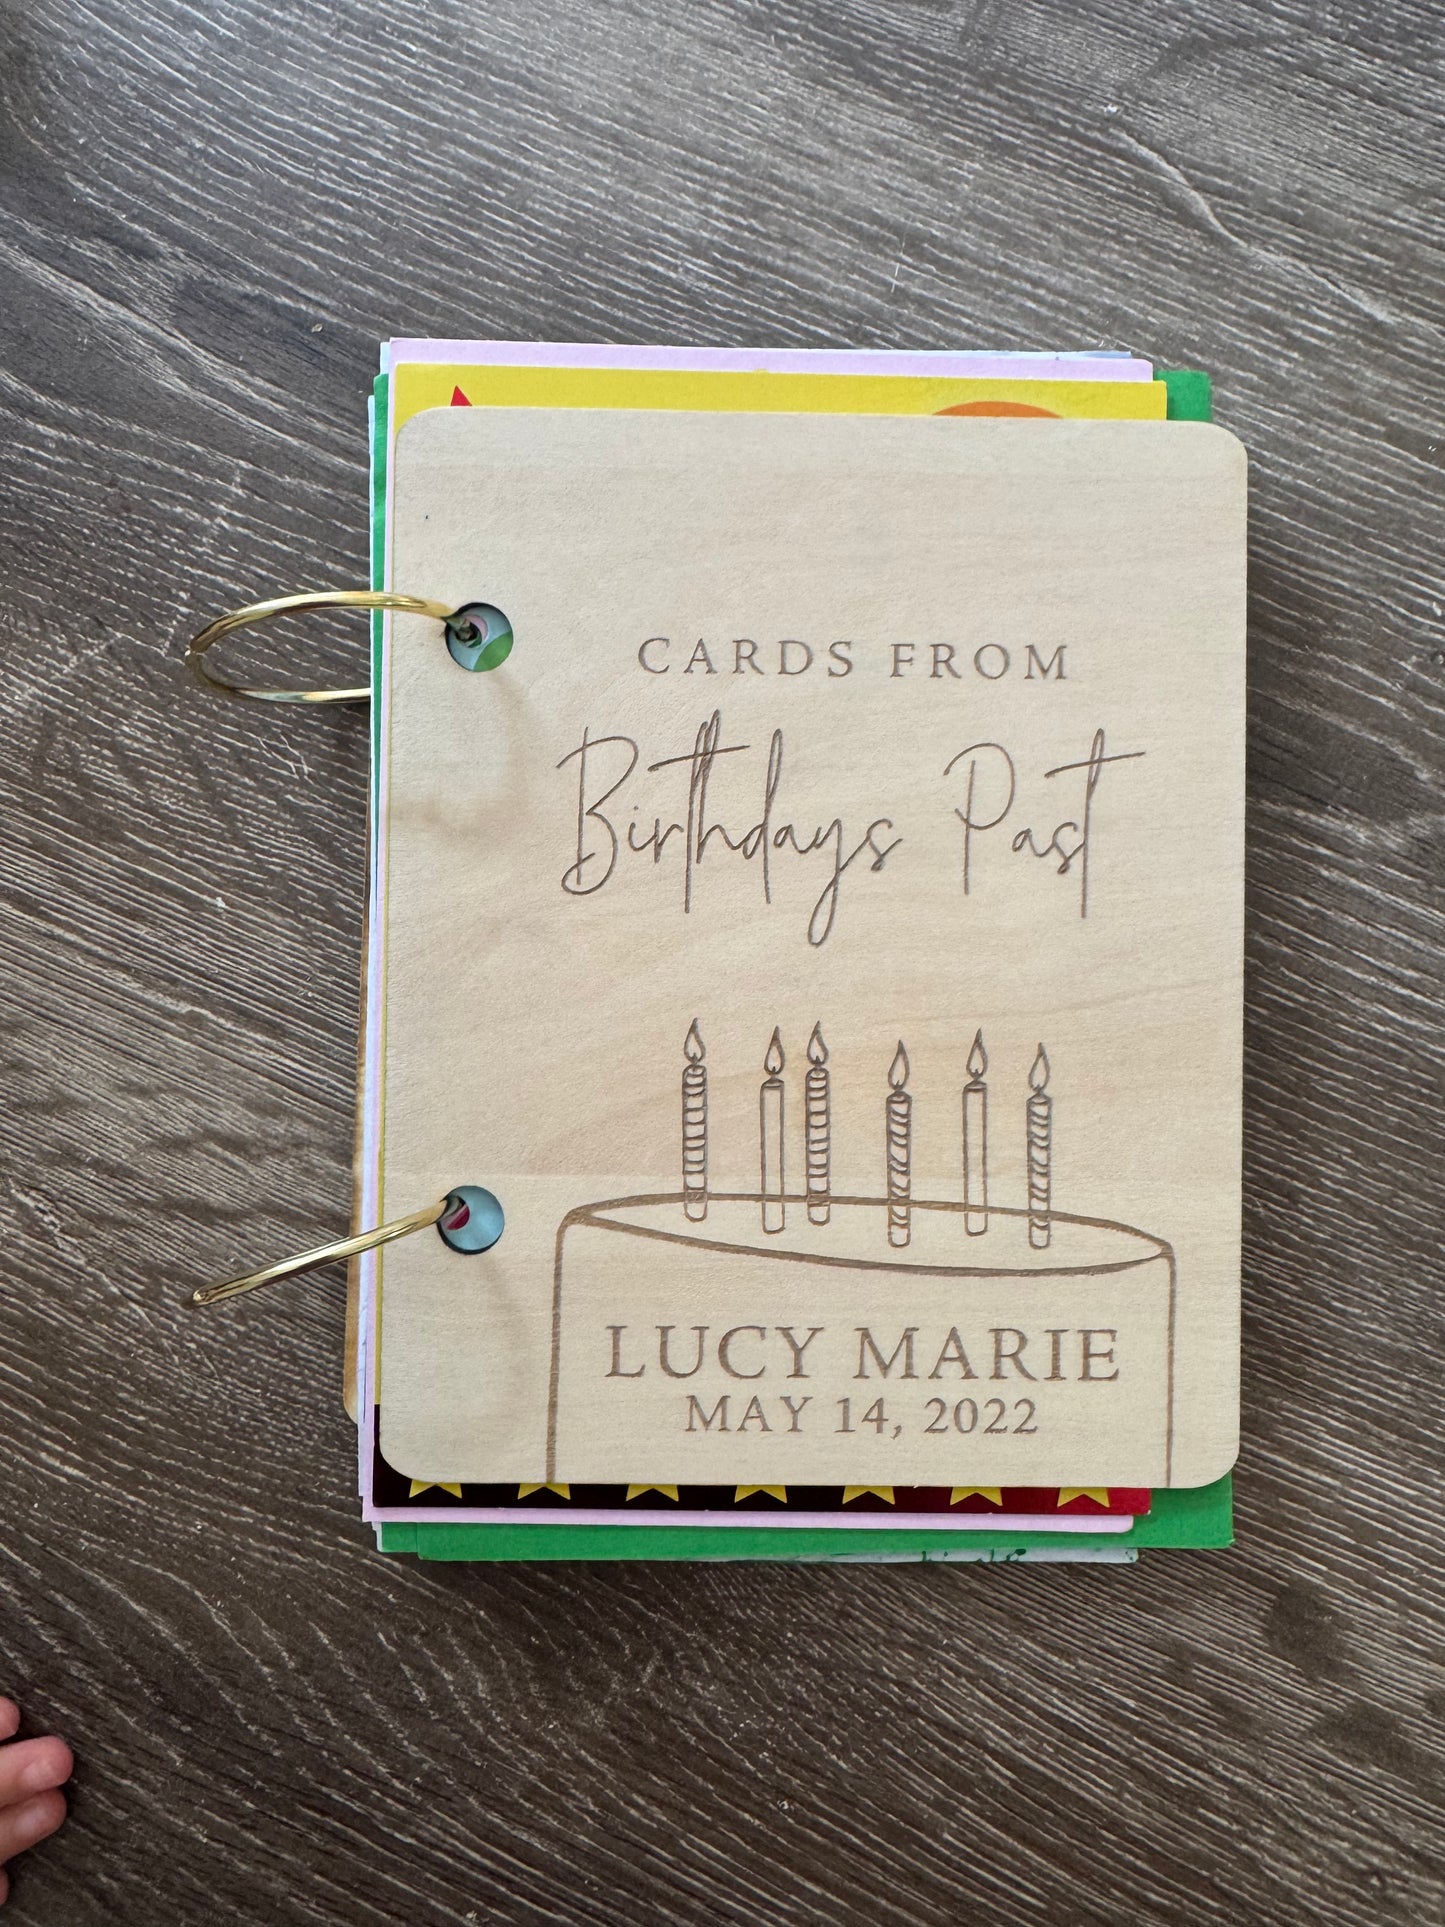 CARDS FROM
Birthdays Past
LUCY MARIE
MAY 14, 2022